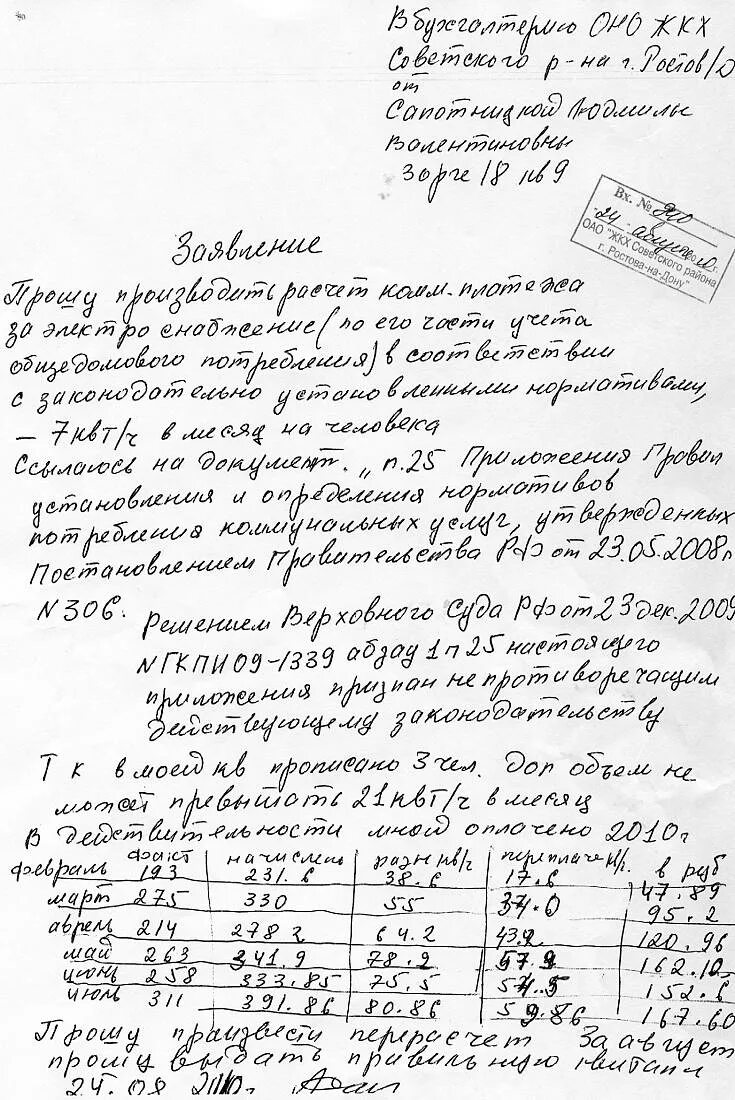 В бухгалтерию ОНО ЖКХ
Советского р-на г. Ростов/Д
от
Сапотницкой Людмилы
Валентиновны
Зорге 18 кв 9
Вх. №
24 августа
ОАО "ЖКХ Советского района
г. Ростова-на-Дону"
Заявление
Прошу производить расчет комм. платежа
за электроснабжение (по его части учета
общедомового потребления) в соответствии
с законодательно установленными нормативами,
– 7 квт/ч в месяц на человека
Ссылаюсь на документ. „п.25 Приложения Правил
установления и определения нормативов
потребления коммунальных услуг, утвержденных
Постановлением Правительства РФ от 23.05.2008г
N 306.
Решением Верховного Суда РФ от 23 дек. 2009
N ГКПИ 09-1339 абзац 1 п 25 настоящего
приложения признан не противоречащим
действующему законодательству
Т к в моей кв прописано 3 чел. Доп объем не
может превышать 21 квт/ч в месяц
В действительности мной оплачено 2010г
факт начислено разн кв/ч переплаче к/ч. в руб
февраль 193 231.6 38.6 17.6 47.89
март 275 330 55 34.0 95.2
апрель 214 278 2 64.2 43.2 120.96
май 263 341.9 78.9 57.9 162.12
июнь 258 333.85 75.5 54.5 152.6
июль 311 391.86 80.86 59.86 167.60
Прошу произвести перерасчет За август
прошу выдать правильную квитанц
24.08 2010г.